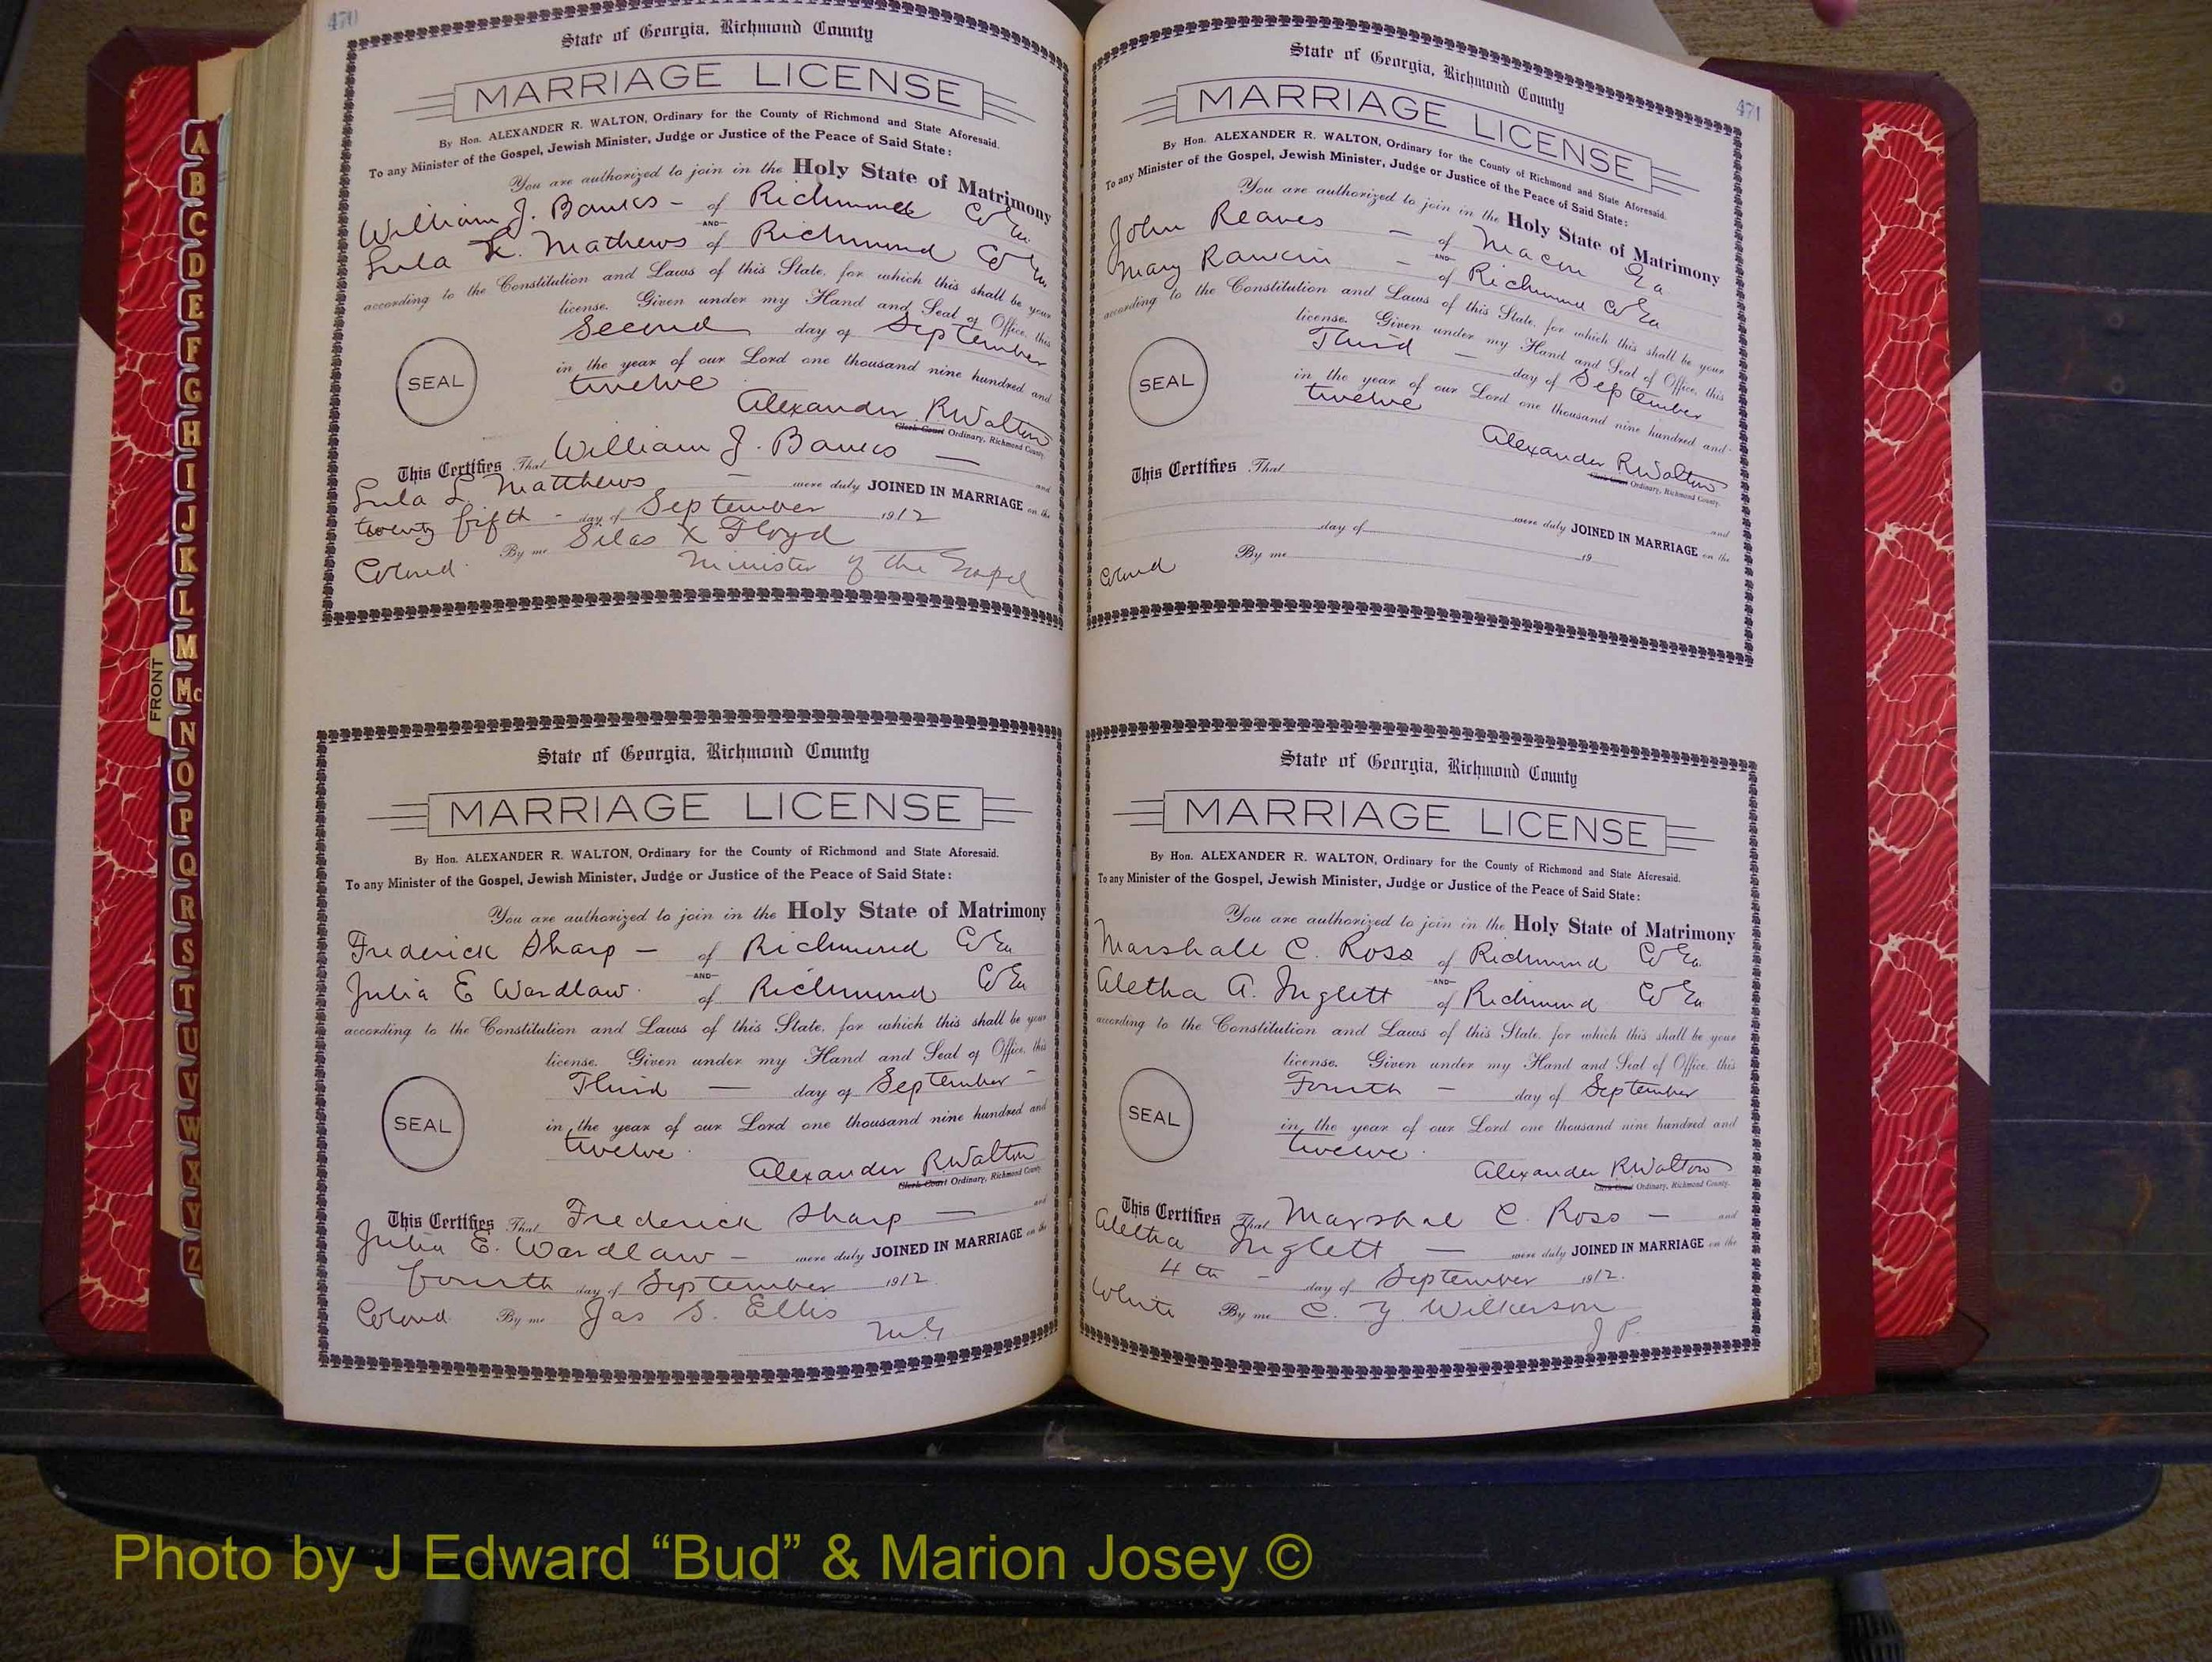 470
State of Georgia, Richmond County
MARRIAGE LICENSE
By Hon. ALEXANDER R. WALTON, Ordinary for the County of Richmond and State Aforesaid.
To any Minister of the Gospel, Jewish Minister, Judge or Justice of the Peace of Said State:
You are authorized to join in the Holy State of Matrimony
William J. Banks - of Richmond Co Ga.
AND
Lula L. Mathews of Richmond Co Ga
according to the Constitution and Laws of this State, for which this shall be your
license. Given under my Hand and Seal of Office, this
Second day of September
SEAL
in the year of our Lord one thousand nine hundred and
twelve
Alexander R Walton
Clerk Court Ordinary, Richmond County.
This Certifies That William J. Banks — and
Lula L. Matthews — were duly JOINED IN MARRIAGE on the
twenty fifth - day of September 1912
By me Silas X Floyd
Colored. Minister of the Gospel
State of Georgia, Richmond County
MARRIAGE LICENSE
By Hon. ALEXANDER R. WALTON, Ordinary for the County of Richmond and State Aforesaid.
To any Minister of the Gospel, Jewish Minister, Judge or Justice of the Peace of Said State:
You are authorized to join in the Holy State of Matrimony
Frederick Sharp — of Richmond Co Ga
AND
Julia E Wardlaw. of Richmond Co Ga
according to the Constitution and Laws of this State, for which this shall be your
license. Given under my Hand and Seal of Office, this
Third — day of September -
SEAL
in the year of our Lord one thousand nine hundred and
twelve.
Alexander R. Walton
Clerk Court Ordinary, Richmond County.
This Certifies That Frederick Sharp — and
Julia E. Wardlaw — were duly JOINED IN MARRIAGE on the
fourth day of September 1912.
Colored. By me Jas S. Ellis
M.G.
471
State of Georgia, Richmond County
MARRIAGE LICENSE
By Hon. ALEXANDER R. WALTON, Ordinary for the County of Richmond and State Aforesaid.
To any Minister of the Gospel, Jewish Minister, Judge or Justice of the Peace of Said State:
You are authorized to join in the Holy State of Matrimony
John Reaves — of Macon Ga
AND
Mary Rankin — of Richmond Co Ga
according to the Constitution and Laws of this State, for which this shall be your
license. Given under my Hand and Seal of Office, this
Third — day of September
SEAL
in the year of our Lord one thousand nine hundred and
twelve
Alexander R Walton
Clerk Court Ordinary, Richmond County.
This Certifies That and
were duly JOINED IN MARRIAGE on the
day of 19
Colored By me
State of Georgia, Richmond County
MARRIAGE LICENSE
By Hon. ALEXANDER R. WALTON, Ordinary for the County of Richmond and State Aforesaid.
To any Minister of the Gospel, Jewish Minister, Judge or Justice of the Peace of Said State:
You are authorized to join in the Holy State of Matrimony
Marshall C. Ross of Richmond Co Ga.
AND
Aletha A. Inglett of Richmond Co Ga
according to the Constitution and Laws of this State, for which this shall be your
license. Given under my Hand and Seal of Office, this
Fourth — day of September
SEAL
in the year of our Lord one thousand nine hundred and
twelve.
Alexander R. Walton
Clerk Court Ordinary, Richmond County.
This Certifies That Marshal C. Ross — and
Aletha Inglett — were duly JOINED IN MARRIAGE on the
4th - day of September 1912.
White By me C. Y. Wilkerson
J P.
FRONT
A
B
C
D
E
F
G
H
I
J
K
L
M
Mc
N
O
P
Q
R
S
T
U
V
W
X
Y
Z
Photo by J Edward “Bud” & Marion Josey ©